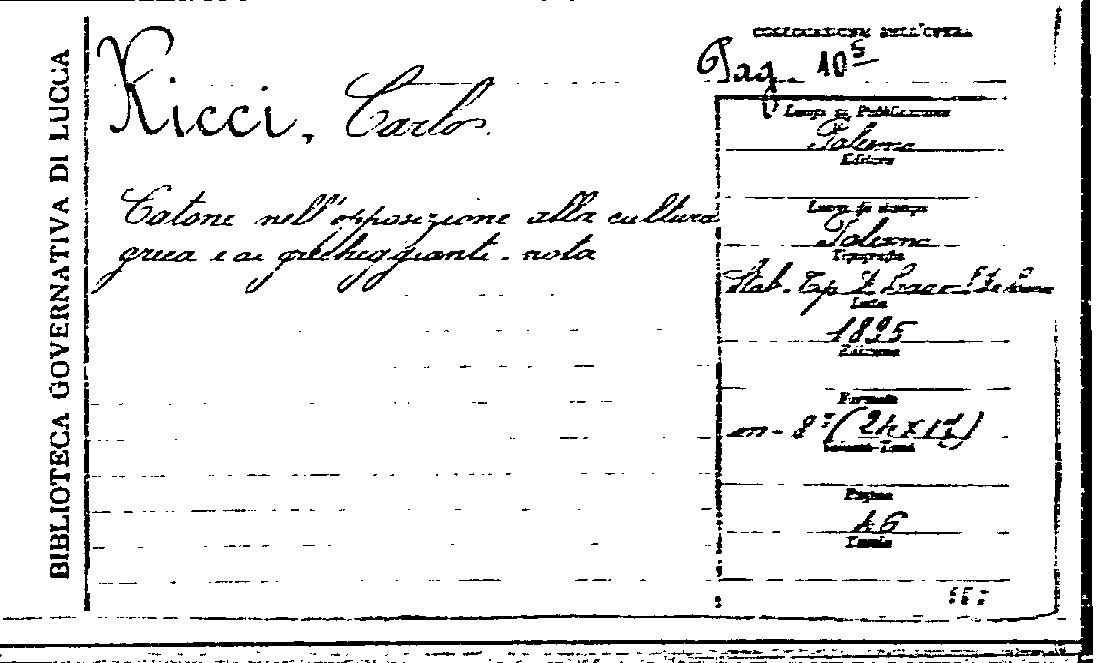 BIBLIOTECA GOVERNATIVA DI LUCCA
COLLOCAZIONE DELL'OPERA
Pag. 10 5
Ricci, Carlo
Catone nell'opposizione alla cultura
greca e ai grecheggianti. nota
Luogo di Pubblicazione
Palermo
Editore
Luogo di stampa
Palermo
Tipografia
Stab. Tip.
Data
1895
Edizione
Formato
in-8°
Pagine
46
Tavole